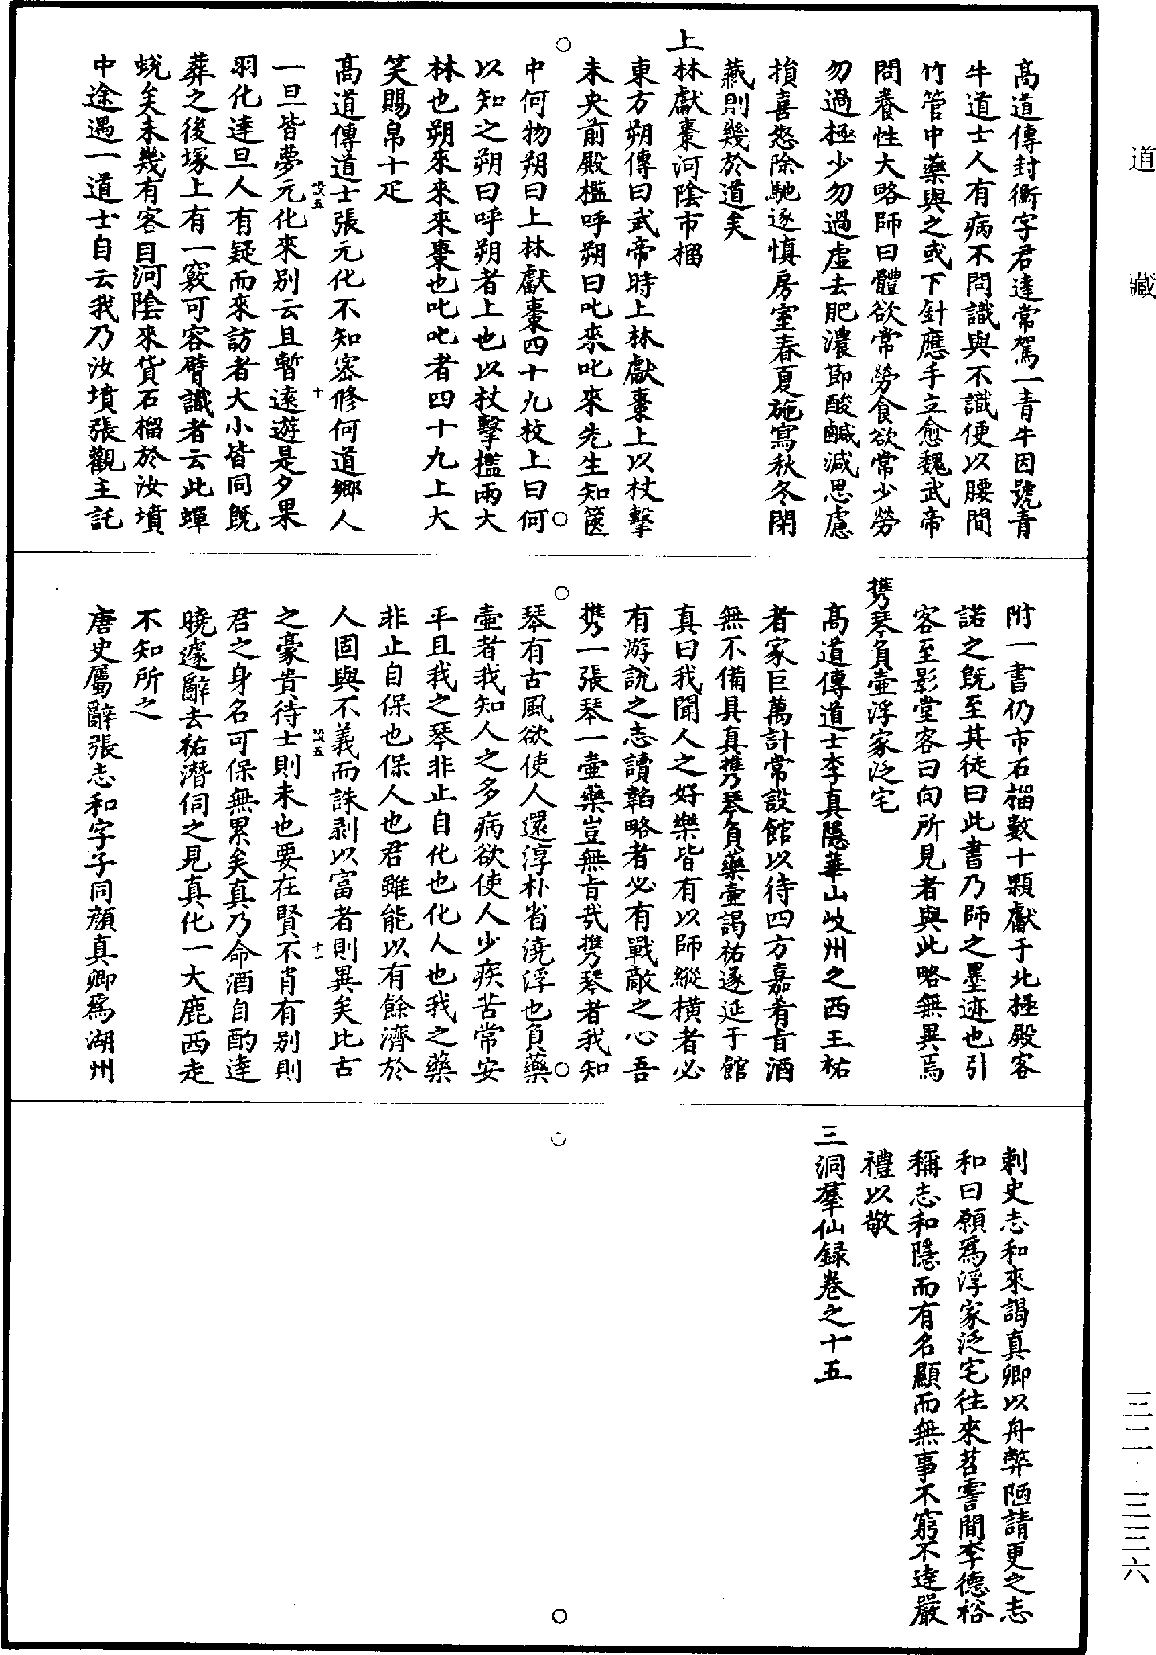 高道傳封衡字君達常駕一青牛因號青
牛道士人有病不問識與不識便以腰間
竹管中藥與之或下針應手立愈魏武帝
問養性大略師曰體欲常勞食欲常少勞
勿過極少勿過虛去肥濃節酸鹹減思慮
損喜怒除馳逐慎房室春夏施寫秋冬閉
藏則幾於道矣
上林獻棗河陰市榴
東方朔傳曰武帝時上林獻棗上以杖擊
未央前殿檻呼朔曰叱來叱來先生知篋
中何物朔曰上林獻棗四十九枚上曰何
以知之朔曰呼朔者上也以杖擊檻兩大
林也朔來來來棗也叱叱者四十九上大
笑賜帛十疋
高道傳道士張元化不知密修何道鄉人
設五
十
一旦皆夢元化來別云且暫遠遊是夕果
羽化達旦人有疑而來訪者大小皆同既
葬之後塚上有一竅可容臂識者云此蟬
蛻矣未幾有客自河陰來貨石榴於汝墳
中途遇一道士自云我乃汝墳張觀主託
附一書仍市石榴數十顆獻于北極殿客
諾之既至其徒曰此書乃師之墨迹也引
客至影堂客曰向所見者與此略無異焉
携琴負壷浮家泛宅
高道傳道士李真隱華山岐州之西王祐
者家巨萬計常設館以待四方嘉肴旨酒
無不備具真携琴負藥壷謁祐遂延于館
真曰我聞人之好樂皆有以師縱橫者必
有游說之志讀韜略者必有戰敵之心吾
携一張琴一壷藥豈無旨哉携琴者我知
琴有古風欲使人還淳朴省澆浮也負藥
壷者我知人之多病欲使人少疾苦常安
平且我之琴非止自化也化人也我之藥
非止自保也保人也君雖能以有餘濟於
人固與不義而誅剥以富者則異矣比古
設五
十一
之豪貴待士則未也要在賢不肖有別則
君之身名可保無累矣真乃命酒自酌達
曉遽辭去祐潛伺之見真化一大鹿西走
不知所之
唐史屬辭張志和字子同顏真卿為湖州
刺史志和來謁真卿以舟弊陋請更之志
和曰願為浮家泛宅往來苕霅間李德裕
稱志和隱而有名顯而無事不窮不達嚴
禮以敬
三洞羣仙録卷之十五
道藏
三二·三三六